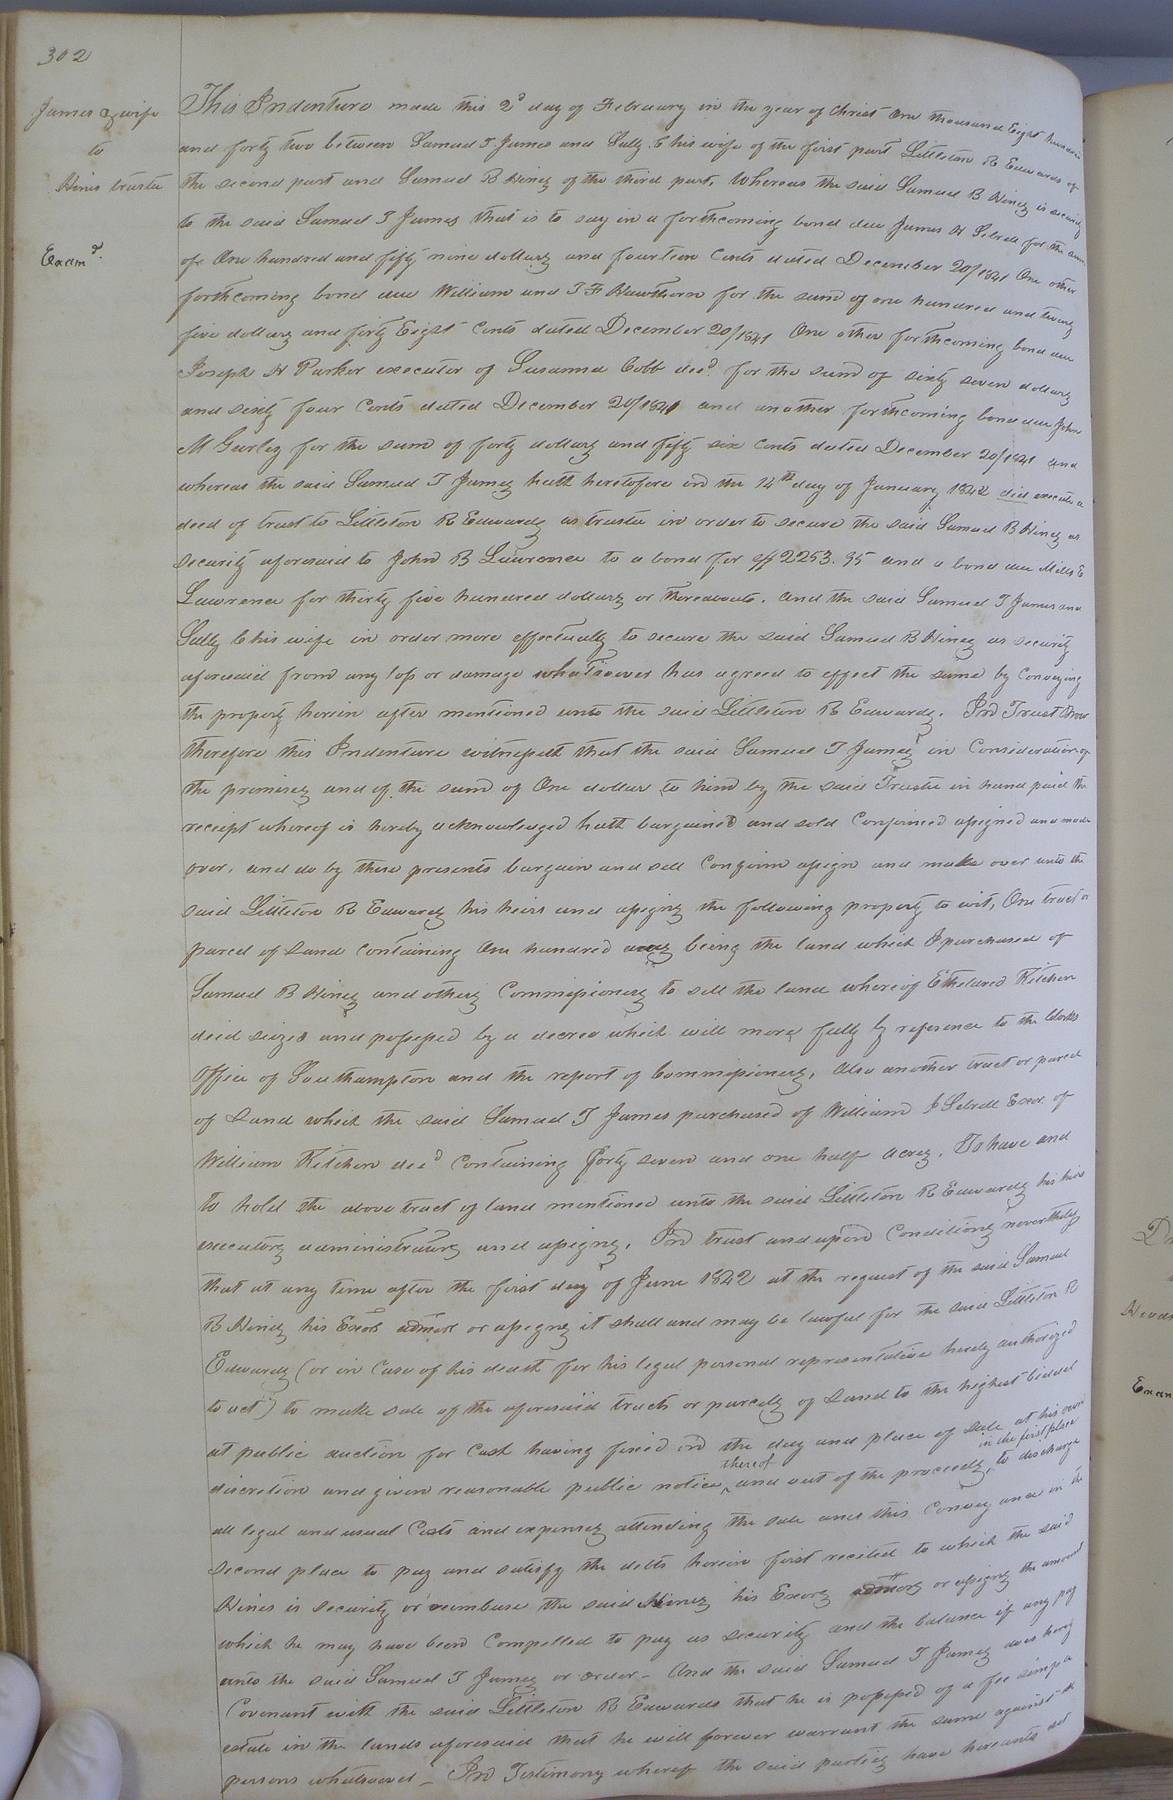 302
James & wife
to
Hines trustee
Examd.
This Indenture made this 2d day of February in the year of Christ One thousand Eight hundred
and forty two between Samuel T James and Sally E his wife of the first part Littleton R Edwards of
the second part and Samuel B Hines of the third part, Whereas the said Samuel B Hines is security
to the said Samuel T James that is to say in a forthcoming bond due James H Sebrell for the sum
of One hundred and fifty nine dollars and fourteen Cents dated December 20/1841 One other
forthcoming bond due William and J F Hawthorn for the sum of one hundred and twenty
five dollars and forty Eight Cents dated December 20/1841 One other forthcoming bond due
Joseph H Parker executor of Susanna Cobb decd. for the sum of sixty seven dollars
and sixty four Cents dated December 20/1841 and another forthcoming bond due John
M Gurley for the sum of forty dollars and fifty six Cents dated December 20/1841 and
whereas the said Samuel T James hath heretofore on the 14th day of January 1842 did execute a
deed of trust to Littleton R Edwards as trustee in order to secure the said Samuel B Hines as
security aforesaid to John B Lawrence to a bond for $2253.95 and a bond due Mills E
Lawrence for thirty five hundred dollars or thereabouts. and the said Samuel T James and
Sally E his wife in order more effectually to secure the said Samuel B Hines as security
aforesaid from any loss or damage whatsoever has agreed to effect the same by Conveying
the property herein after mentioned unto the said Littleton R Edwards. In Trust Now
therefore this Indenture witnesseth that the said Samuel T James in Consideration of
the premises and of the sum of One dollar to him by the said Trustee in hand paid the
receipt whereof is hereby acknowledged hath bargained and sold Confirmed assigned and made
over, and do by these presents bargain and sell Confirm assign and make over unto the
said Littleton R Edwards his heirs and assigns the following property to wit, One tract or
parcel of Land Containing One hundred acres being the land which I purchased of
Samuel B Hines and others Commissioners to sell the land whereof Etheldred Kitchen
died seized and possessed by a decree which will more fully by reference to the Clerks
Office of Southampton and the report of Commissioners, Also another tract or parcel
of Land which the said Samuel T James purchased of William J Sebrell Exor. of
William Kitchen decd Containing forty seven and one half Acres. To have and
to hold the above tract of land mentioned unto the said Littleton R Edwards his heirs
executors administrators and assigns, In trust and upon Conditions nevertheless
that at any time after the first day of June 1842 at the request of the said Samuel
B Hines his Exors admors or assigns it shall and may be lawful for the said Littleton R
Edwards (or in Case of his death for his legal personal representative hereby authorized
to act) to make sale of the aforesaid tracts or parcels of Land to the highest bidder
at public auction for Cash having fixed on the day and place of sale at his own
discretion and given reasonable public notice thereof and out of the proceeds in the first place to discharge
all legal and usual Costs and expenses attending the sale and this Conveyance in the
second place to pay and satisfy the debts herein first recited to which the said
Hines is security or reimburse the said Hines his Exors admors or assigns the amount
which he may have been Compelled to pay as security and the balance if any pay
unto the said Samuel T James or order - And the said Samuel T James does hereby
Covenant with the said Littleton R Edwards that he is possessed of a fee simple
estate in the lands aforesaid that he will forever warrant the same against all
persons whatsoever - In Testimony whereof the said parties have hereunto set